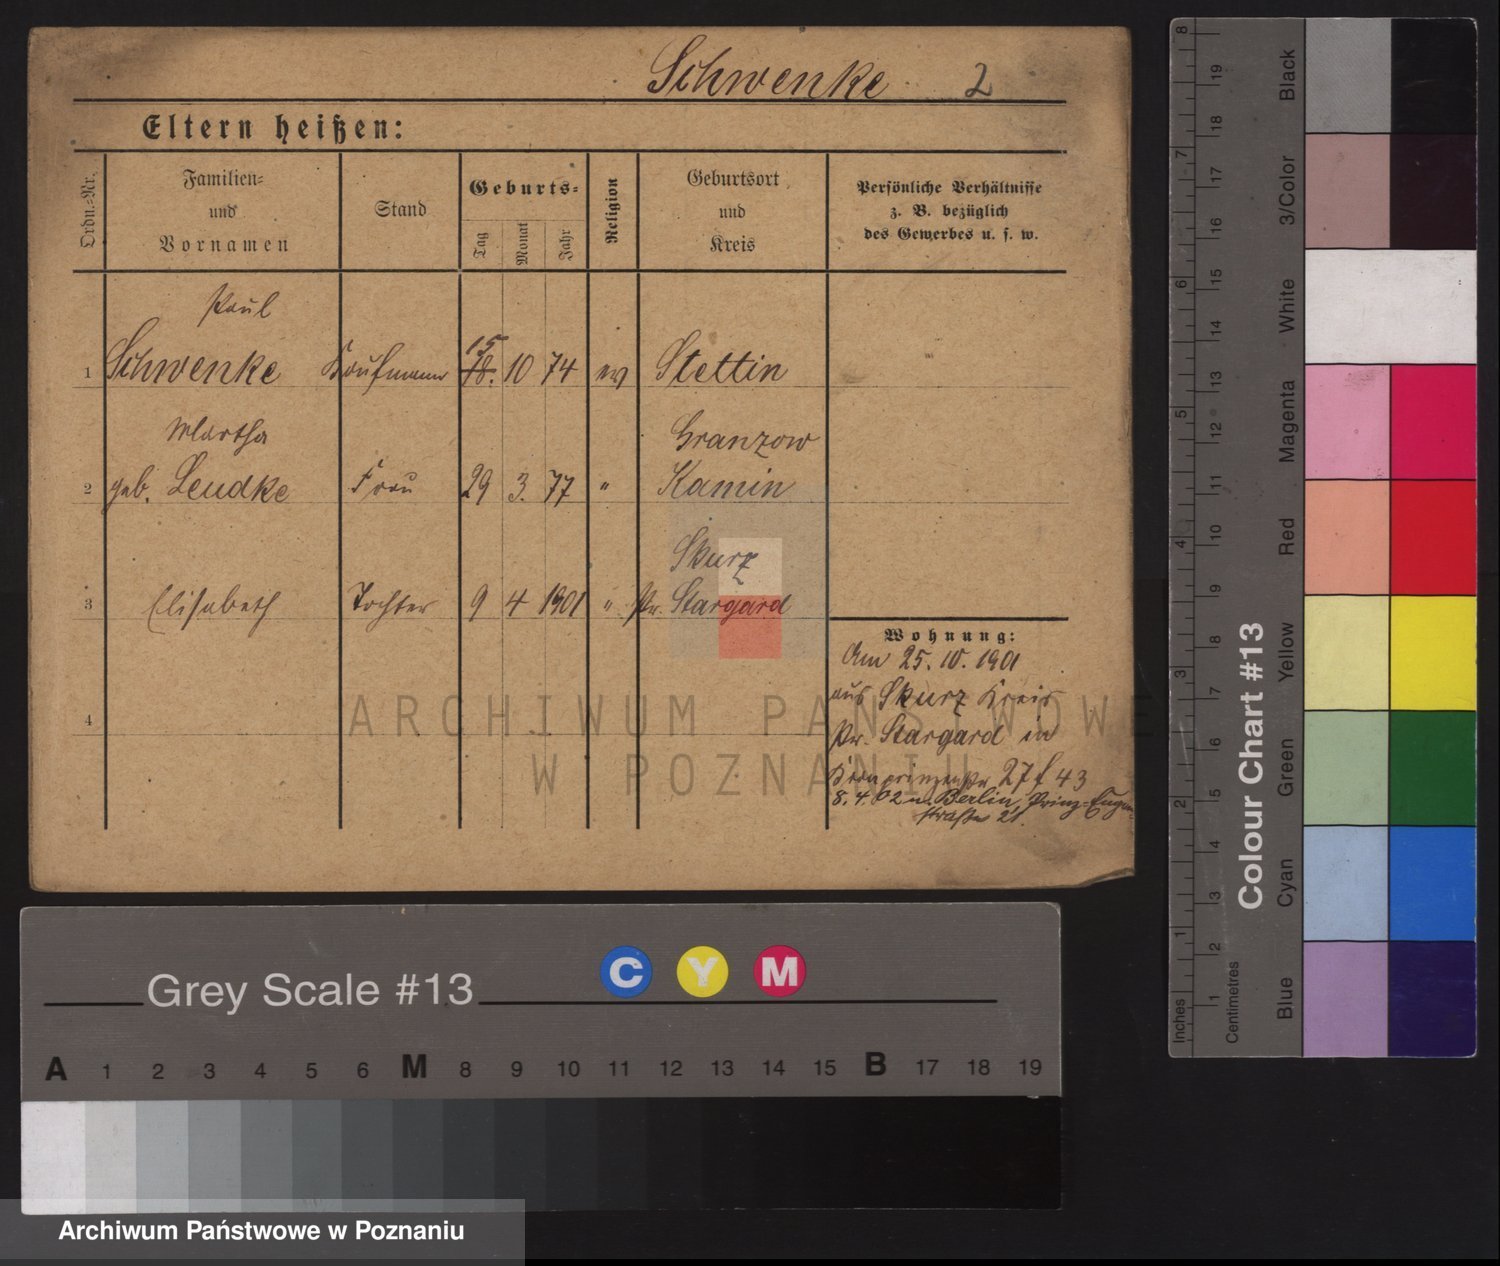 Schwenke 2
Eltern heißen:
Ordn.-Nr.
Familien-
und
Vornamen
Stand
Geburts-
Tag
Monat
Jahr
Religion
Geburtsort
und
Kreis
Persönliche Verhältnisse
z. B. bezüglich
des Gewerbes u. s. w.
Paul
15
1 Schwenke Kaufmann 18. 10 74 ev Stettin
Martha Granzow
2 geb. Leudke Frau 29 3. 77 " Kamin
Skurz
3 Elisabeth Tochter 9 4 1901 " Pr. Stargard
4
Wohnung:
Am 25. 10. 1901
aus Skurz Kreis
Pr. Stargard in
Kronprinzenstr 27 f 43
8. 4. 02 n. Berlin, Prinz-Eugen-
straße 21.
ARCHIWUM PAŃSTWOWE
W POZNANIU
Grey Scale #13
C Y M
A 1 2 3 4 5 6 M 8 9 10 11 12 13 14 15 B 17 18 19
Colour Chart #13
Blue Cyan Green Yellow Red Magenta White 3/Color Black
Inches 1 2 3 4 5 6 7 8
Centimetres 1 2 3 4 5 6 7 8 9 10 11 12 13 14 15 16 17 18 19
Archiwum Państwowe w Poznaniu